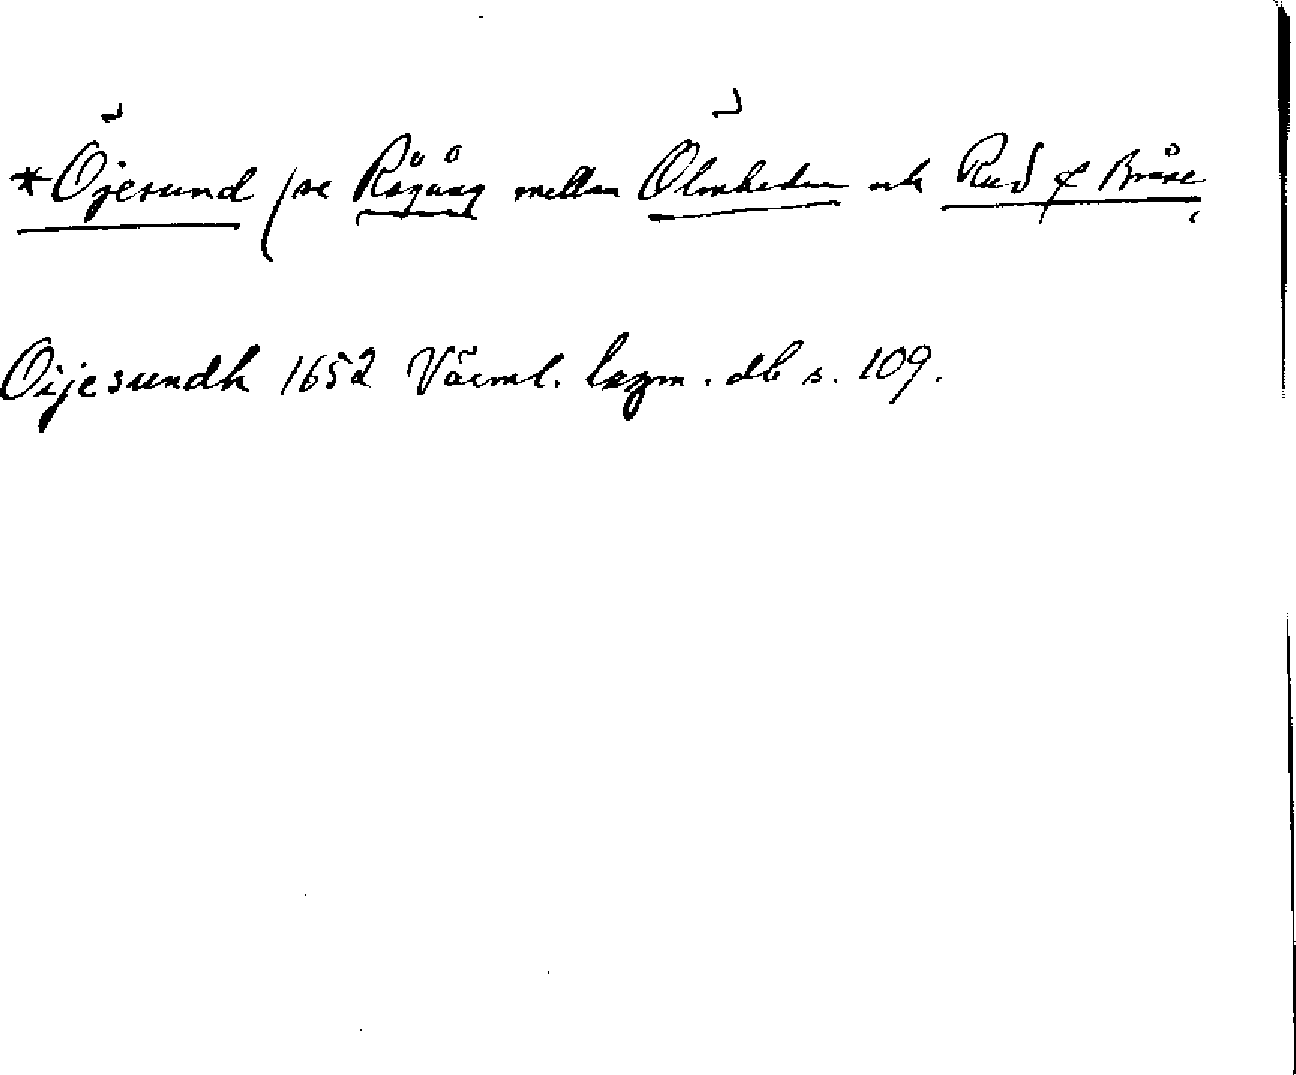 *Öjesund, se Rågång mellan Ölmheden och Rud f Bråne
Öijesundh 1652 Värml. lagm. db s. 109.